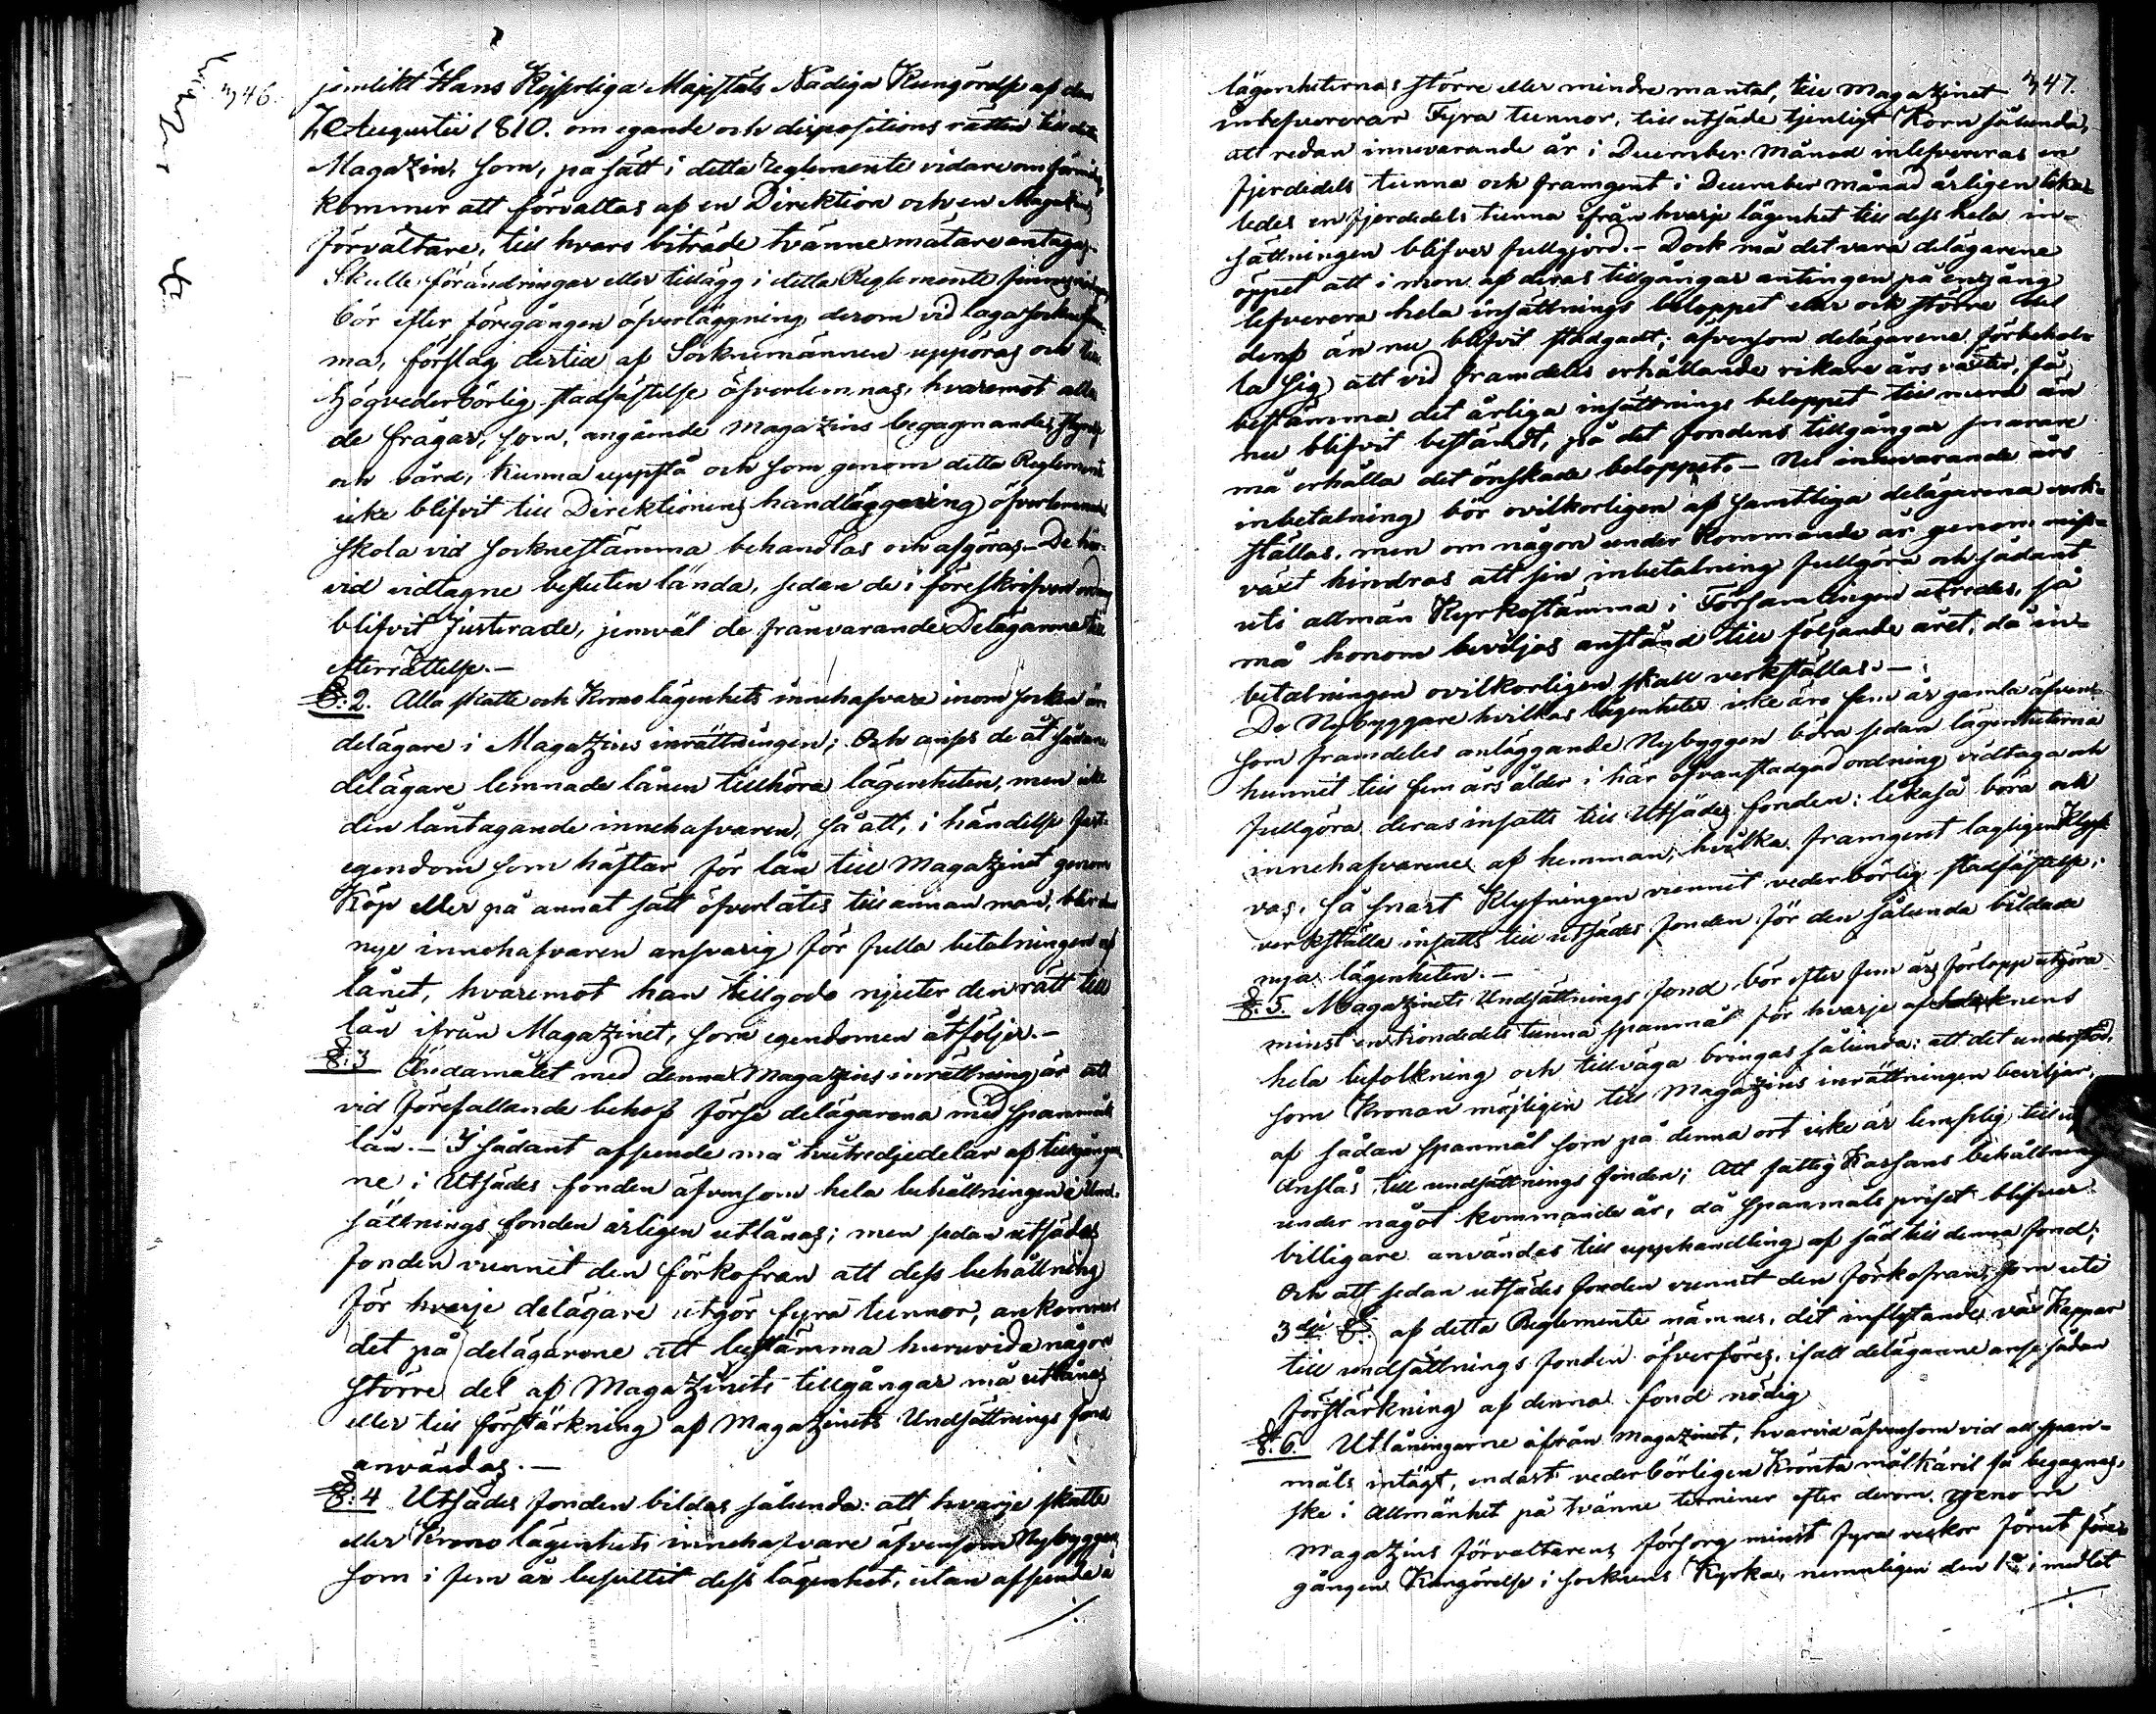 346.
jemlikt Hans Kejserliga Majestäts Nådiga Kungörelse af den
7 Augustii 1810. om egande och dispositions rätten till detta
Magazin, som, på sätt i detta Reglemente vidare om förmäles
kommer att förvaltas af en Direktion och en Magazins
förvaltare, till hvars biträde tvänne mätare antagas.
Skulle förändringar eller tillägg i detta Reglemente finnas
bör efter föregången öfverläggning derom vid laga sockne stäm-
ma, förslag dertill af Socknemännen uppgöras och till
Högvederbörlig stadfästelse öfverlemnas, hvaremot alla
de frågor, som, angående Magazins begagnandes,
och vård, kunna uppstå och som genom detta Reglemente
icke blifvit till Direktionens handläggning öfverlemnade
skola vid socknestämma behandlas och afgöras. De här-
vid vidtagne besluten lända, sedan de i föreskrifven ordning
blifvit justerade, jemväl de frånvarande Delägarne till
efterrättelse.—
§: 2. Alla skatte och Krono lägenhets innehafvare inom socken äro
delägare i Magazins inrättningen; Och anses de åt sådane
delägare lemnade lånen tillhöra lägenheten, men icke
den låntagande innehafvaren, så att, i händelse fast-
egendom som häftar för lån till Magazinet genom
Köp eller på annat sätt öfverlåtes till annan man, blir den
nye innehafvaren ansvarig för fulla betalningen af
lånet, hvaremot han tillgodo njuter den rätt till
lån ifrån Magazinet, som egendomen åtföljer.—
§: 3 Ändamålet med denna Magazins inrättning är att
vid förefallande behof förse delägarena med spanmåls
lån.— I sådant afseende må tvåtredjedelar af tillgångar-
ne i Utsädes fonden äfvensom hela behållningen i Und-
sättnings fonden årligen utlånas; men sedan utsädes
fonden vunnit den förkofran att dess behållning
för hvarje delägare utgör fyra tunnor, ankommer
det på delägarene att bestämma huruvida någon
större del af Magazinets tillgångar må utlånas
eller till förstärkning af Magazinets Undsättnings fond
användas.—
§: 4 Utsädes fonden bildas sålunda: att hvarje skatte
eller Krono lägenhets innehafvare äfvensom Nybyggare
som i fem år besuttit dess lägenhet, utan afseende å
./.
347.
lägenheternas större eller mindre mantal, till Magazinet
inlefvererar Fyra tunnor, till utsäde tjenligt Korn sålunda,
att redan innevarande år i December Månad inlefvereras en
fjerdedels tunna och framgent i December månad årligen lika-
ledes en fjerdedels tunna ifrån hvarje lägenhet till dess hela in-
sättningen blifver fullgjord.— Dock må det vara delägarena
öppet att i mon af deras tillgångar antingen på en gång
lefverera hela insättnings beloppet eller ock större del
deraf än nu blifvit stadgadt; äfvensom delägarene förbehål-
la sig att vid framdeles erhållande rikare års växter, få
bestämma det årliga insättnings beloppet till mera än
nu blifvit bestämdt, på det fondens tillgångar snarare
må erhålla det önskade beloppet.— Nu innevarande års
inbetalning bör ovilkorligen af samtliga delägarena verk-
ställas, men om någon under kommande år genom miss-
växt hindras att sin inbetalning fullgöra och sådant
uti allmän Kyrkostämma i Församlingen utredes, så
må honom beviljas anstånd till följande året, då in-
betalningen ovilkorligen skall verkställas.—
De Nybyggare hvilkas lägenheter icke äro fem år gamla äfven-
som framdeles anläggande Nybyggen böra sedan lägenheterna
hunnit till fem års ålder i här ofvanstadgad ordning vidtaga och
fullgöra deras insatts till Utsädes fonden: likaså böra ock
innehafvarena af hemman, hvilka framgent lagligen Klyf-
vas, så snart Klyfningen vunnit vederbörlig stadfästelse,
verkställa insatts till utsädes fonden för den sålunda bildade
nya lägenheten.—
§: 5. Magazinets Undsättnings fond bör efter fem års förlopp utgöra
minst en tiondedels tunna spanmål för hvarje af socknens
hela befolkning och tillväga bringas sålunda: att det understöd,
som Kronan möjligen till Magazins inrättningen beviljar,
af sådan spanmål som på denna ort icke är lämplig till
anslås till undsättnings fonden; Att fattig Kassans behållning
under något kommande år, då spanmåls priset blifver
billigare användes till upphandling af säd till denna fond;
Och att sedan utsädes fonden vunnit den förkofran, som uti
3dje § af detta Reglemente nämnes, det inflytande vär Kappar
till undsättnings fonden öfverföres, ifall delägarene anse sådan
förstärkning af denna fond nödig
§: 6. Utlåningarne ifrån Magazinet, hvarvid äfvensom vid all span-
måls intägt, endast vederbörligen Krönta målkäril få begagnas,
ske i Allmänhet på tvänne terminer efter derom genom
Magazins förvaltarens försorg minst fyra veckor förut före-
gången Kungörelse i socknens Kyrka, nemnligen den 1a i medlet
./.